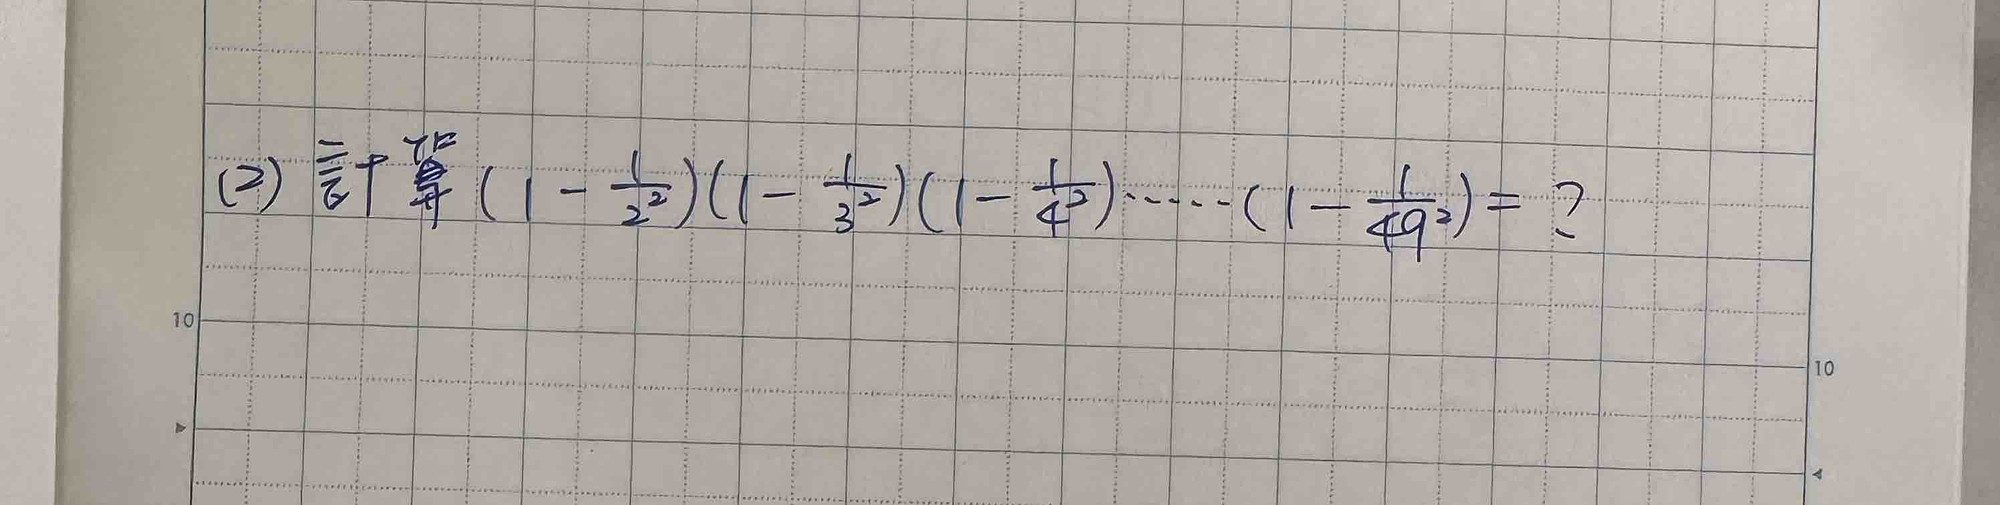 (2) 計算 (1 - 1/2²)(1 - 1/3²)(1 - 1/4²)·····(1 - 1/49²) = ?
10
10